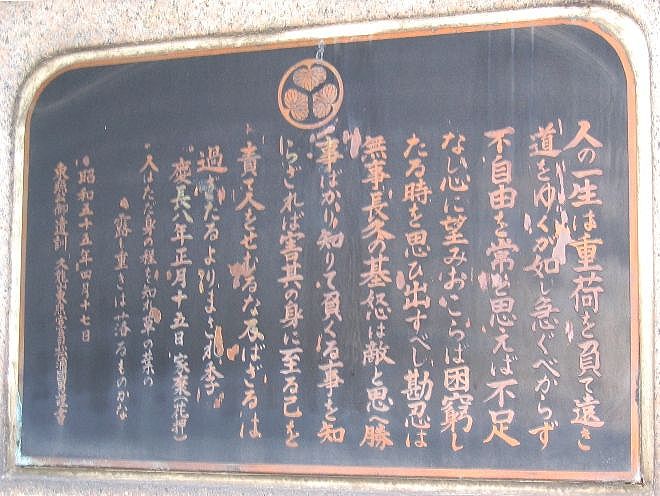 人の一生は重荷を負て遠き
道をゆくが如し急ぐべからず
不自由を常と思えば不足
ない心に望みおこらば困窮し
たる時を思ひ出すべし勘忍は
無事長久の基怒は敵と思へ勝
事ばかり知りて負くる事を知
らざれば害其の身に至る己を
責て人をせむるな及ばざるは
過ぎたるよりまされ李
慶長八年正月十五日 家康(花押)
人はただ身の程を知れ草の葉の
露も重きは落るものかな
昭和五十五年四月十七日
東照公御遺訓